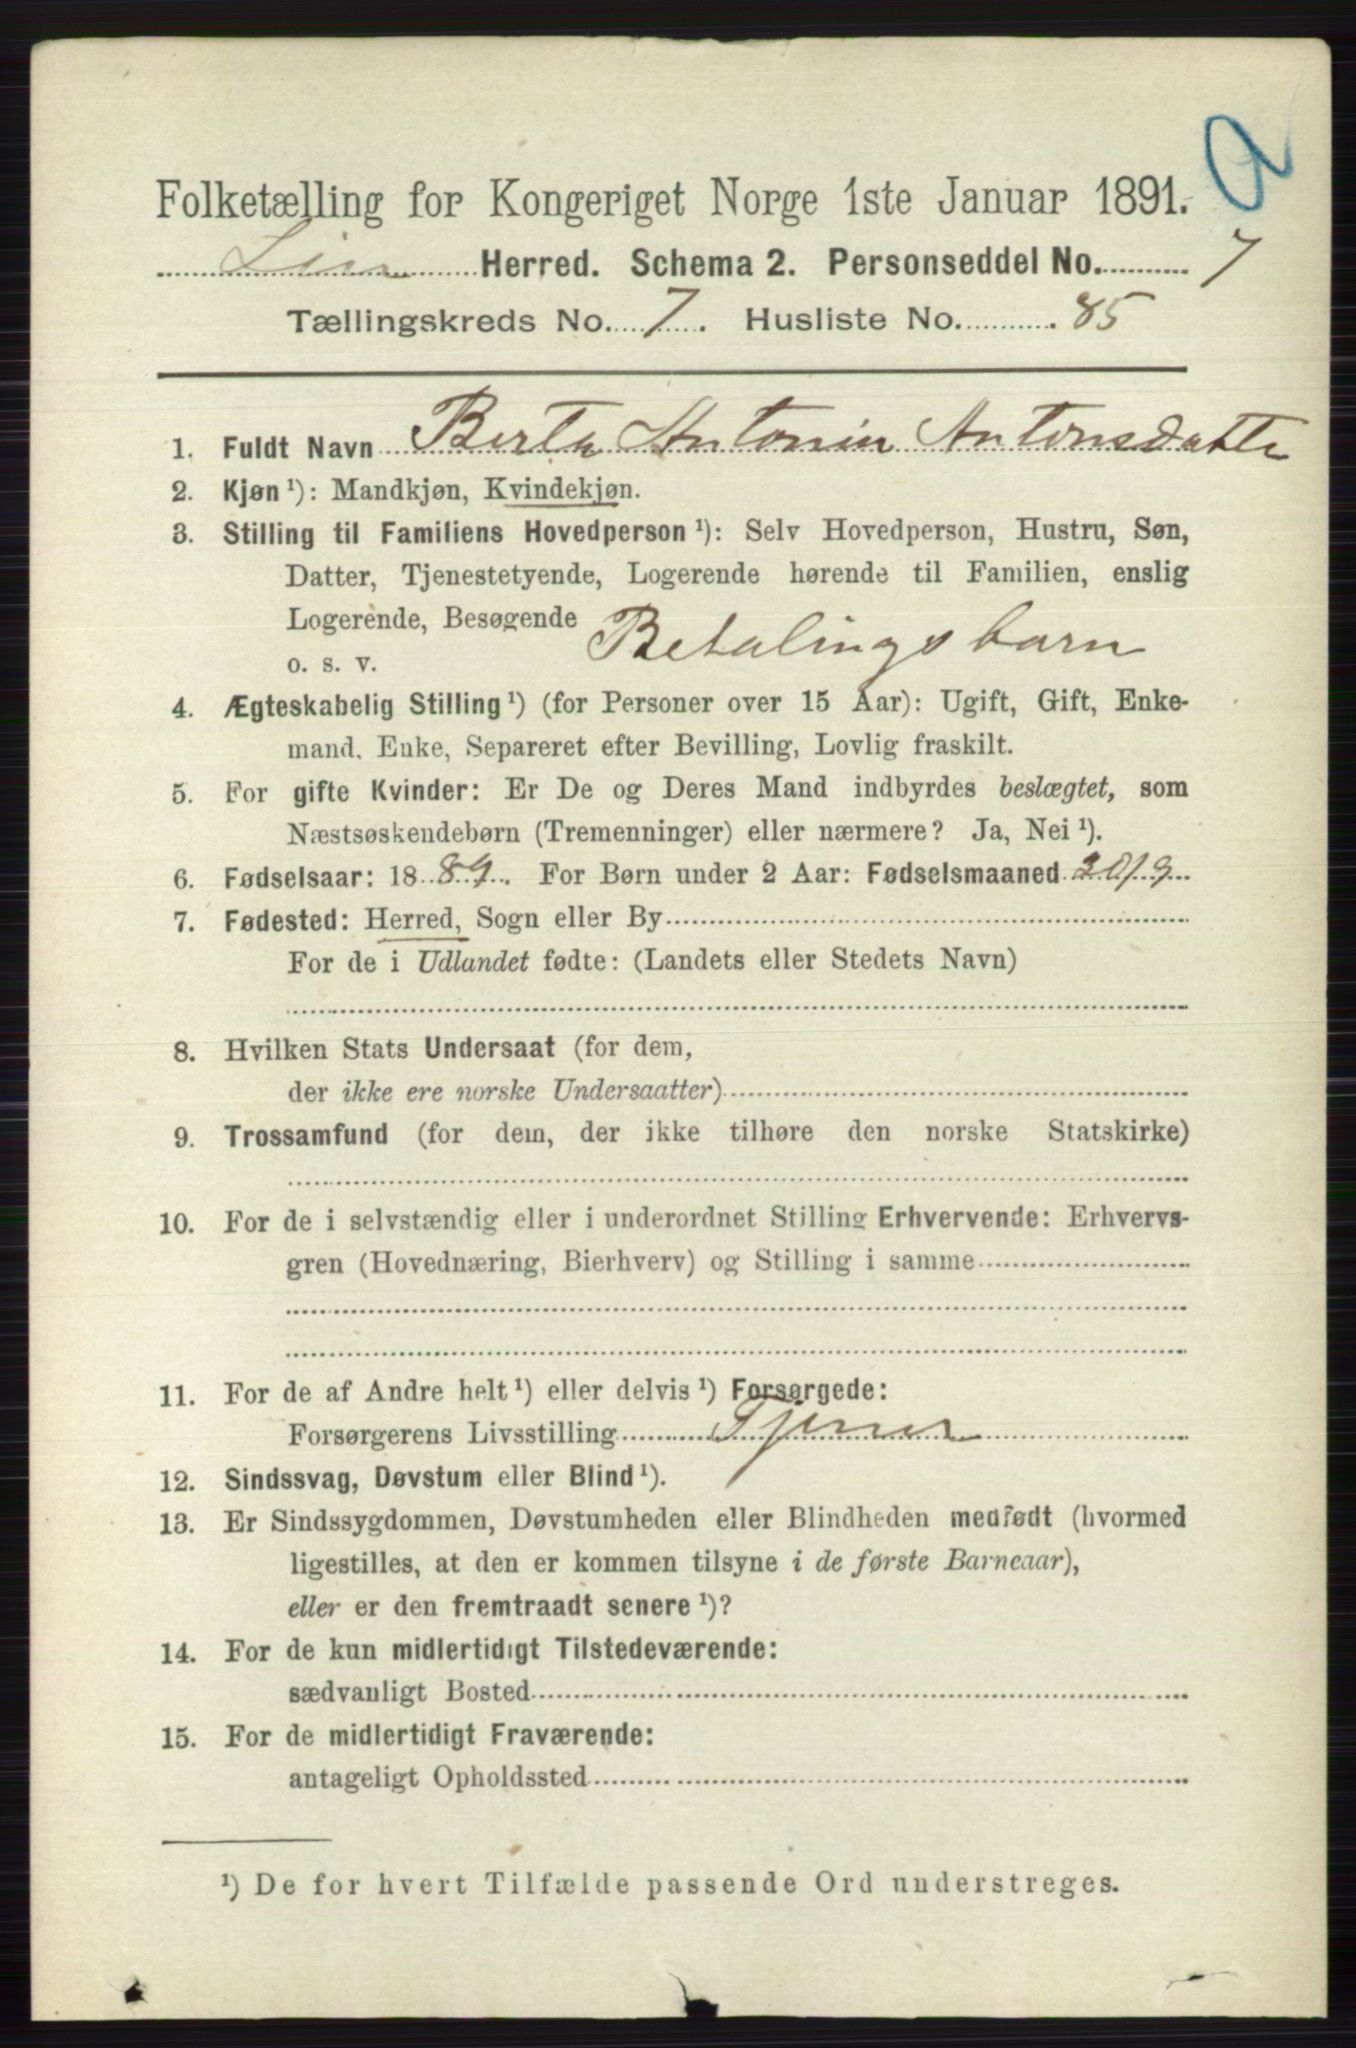 Folketælling for Kongeriget Norge 1ste Januar 1891.
Lier Herred. Schema 2. Personseddel No. 7
Tællingskreds No. 7. Husliste No. 85
1. Fuldt Navn Berta Antonin Antonsdatte
2. Kjøn ¹): Mandkjøn, Kvindekjøn.
3. Stilling til Familiens Hovedperson ¹): Selv Hovedperson, Hustru, Søn,
Datter, Tjenestetyende, Logerende hørende til Familien, enslig
Logerende, Besøgende
o. s. v. Betalingsbarn
4. Ægteskabelig Stilling ¹) (for Personer over 15 Aar): Ugift, Gift, Enke-
mand, Enke, Separeret efter Bevilling, Lovlig fraskilt.
5. For gifte Kvinder: Er De og Deres Mand indbyrdes beslægtet, som
Næstsøskendebørn (Tremenninger) eller nærmere? Ja, Nei ¹).
6. Fødselsaar: 1889. For Børn under 2 Aar: Fødselsmaaned 20/9
7. Fødested: Herred, Sogn eller By
For de i Udlandet fødte: (Landets eller Stedets Navn)
8. Hvilken Stats Undersaat (for dem,
der ikke ere norske Undersaatter)
9. Trossamfund (for dem, der ikke tilhøre den norske Statskirke)
10. For de i selvstændig eller i underordnet Stilling Erhvervende: Erhvervs-
gren (Hovednæring, Bierhverv) og Stilling i samme
11. For de af Andre helt ¹) eller delvis ¹) Forsørgede:
Forsørgerens Livsstilling Tjener
12. Sindssvag, Døvstum eller Blind ¹).
13. Er Sindssygdommen, Døvstumheden eller Blindheden medfødt (hvormed
ligestilles, at den er kommen tilsyne i de første Barneaar),
eller er den fremtraadt senere ¹)?
14. For de kun midlertidigt Tilstedeværende:
sædvanligt Bosted
15. For de midlertidigt Fraværende:
antageligt Opholdssted
¹) De for hvert Tilfælde passende Ord understreges.